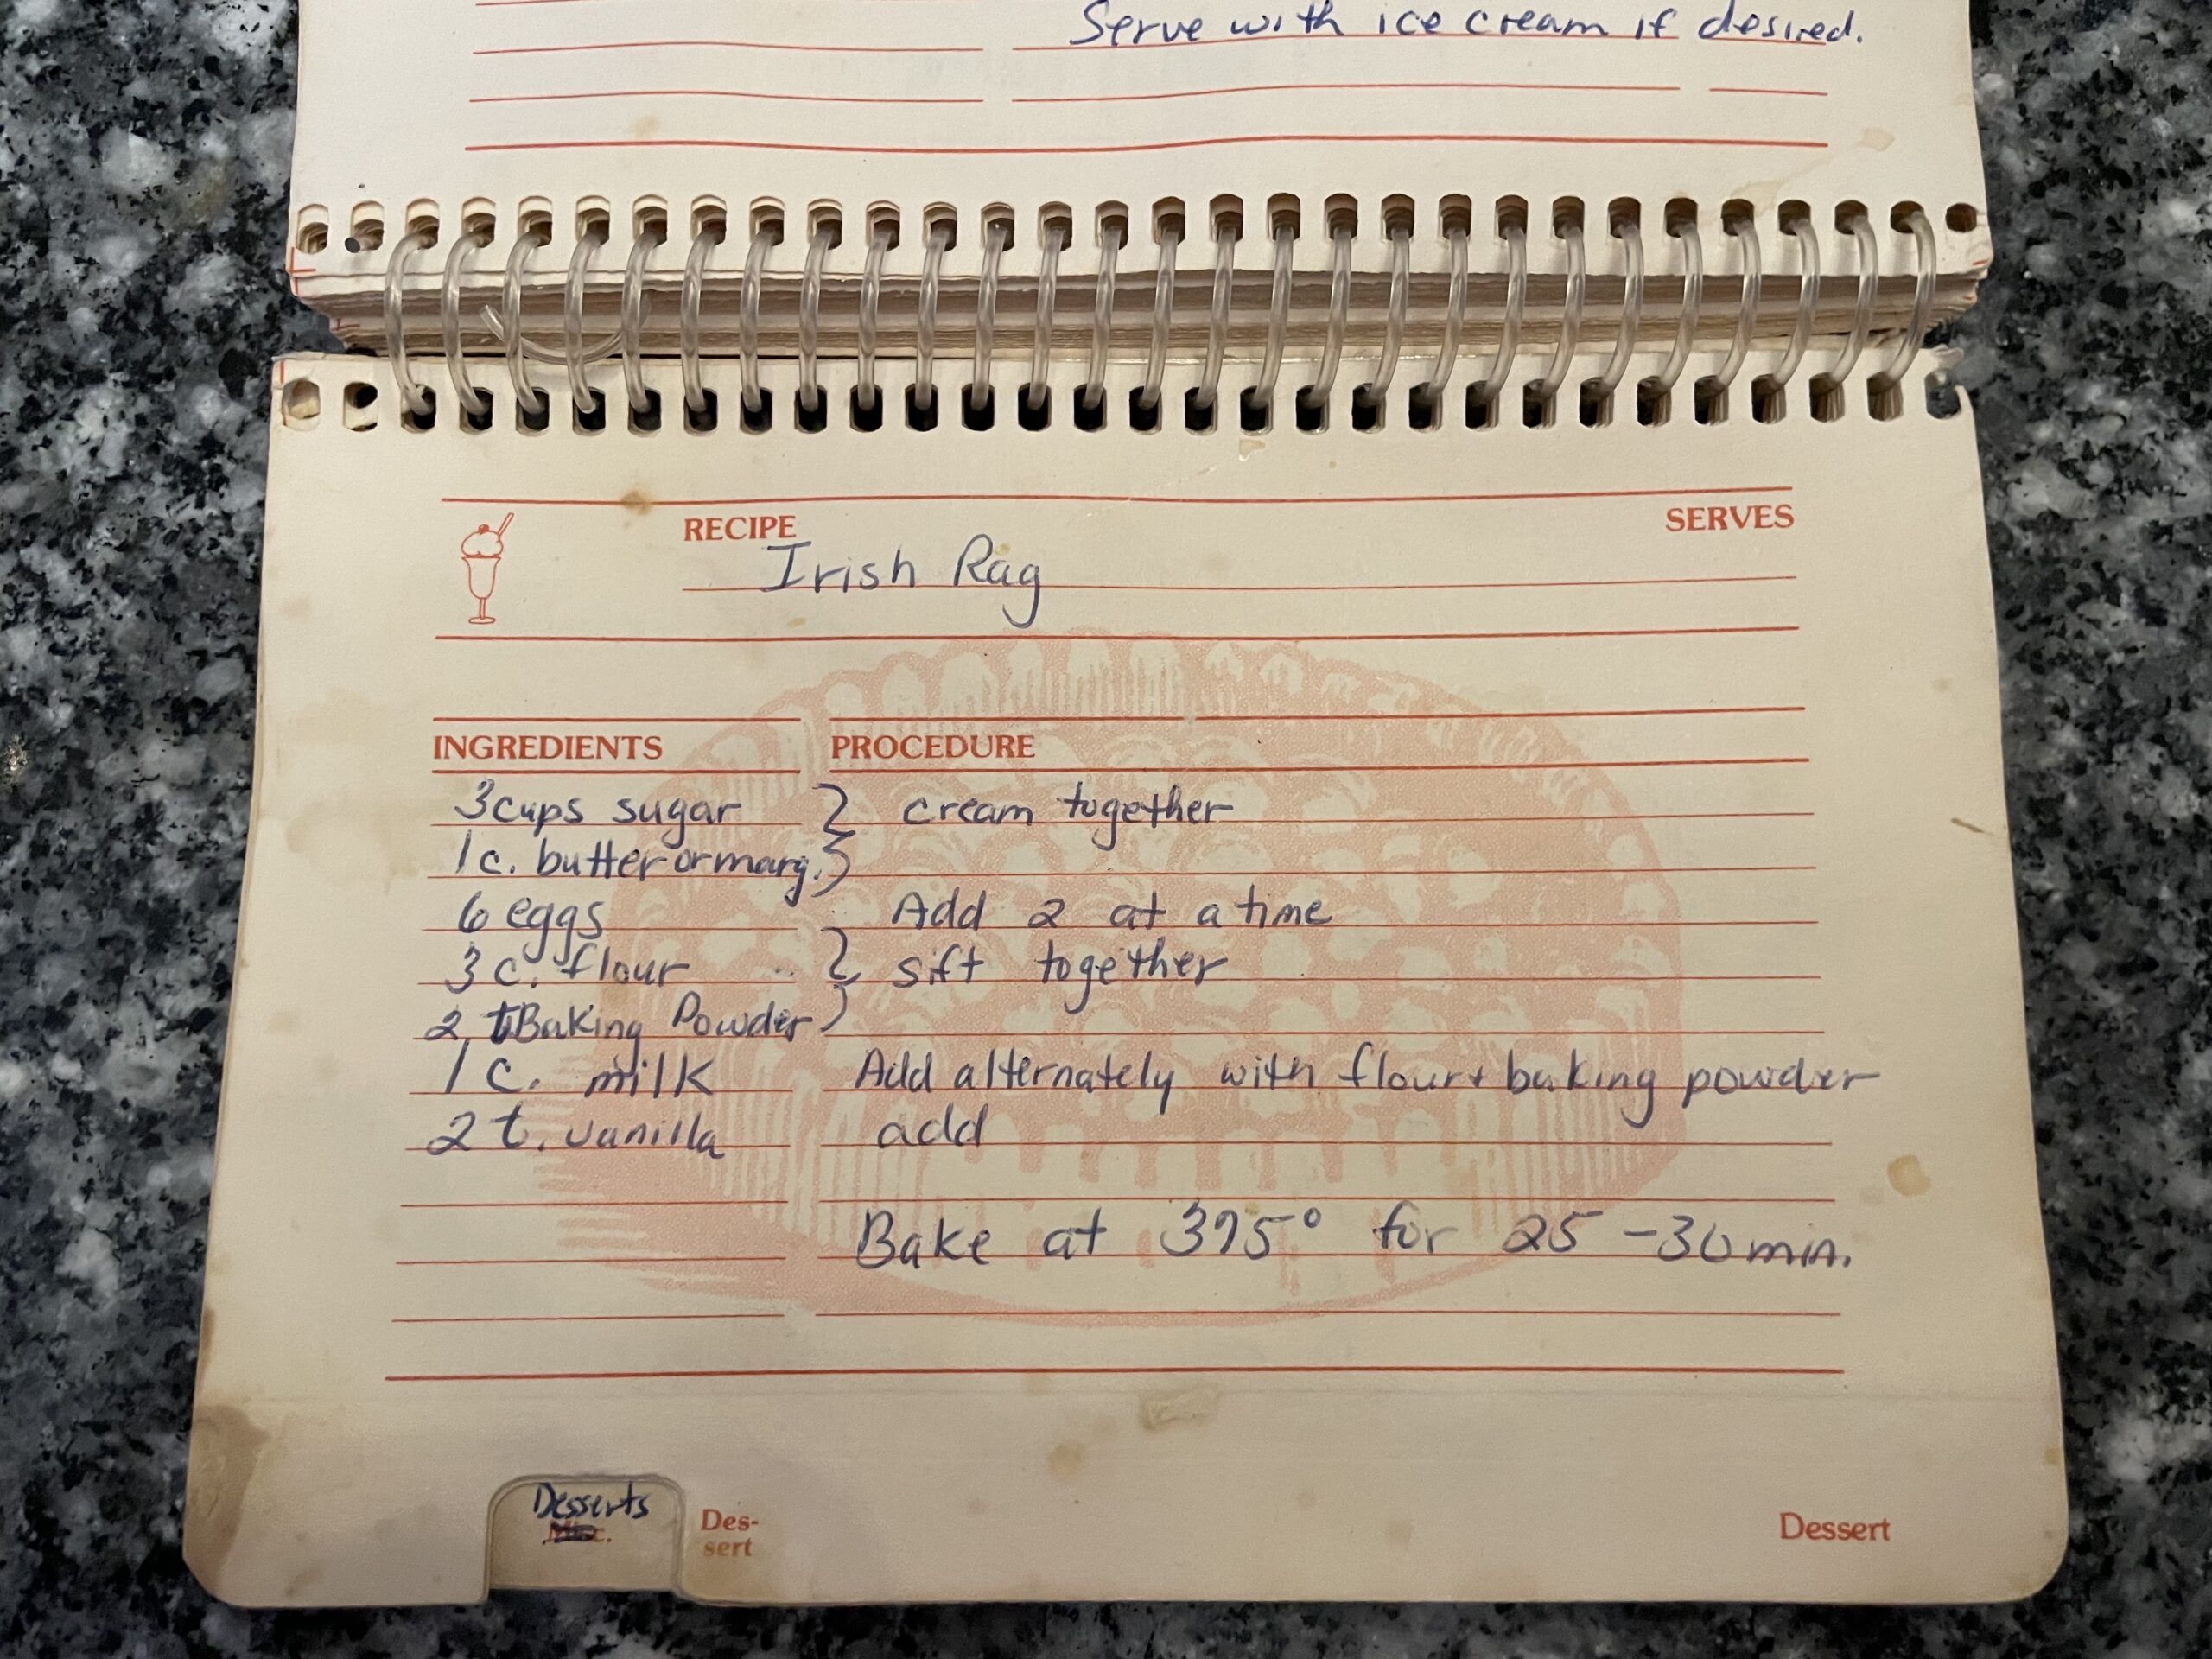 Serve with ice cream if desired.
RECIPE
SERVES
Irish Rag
INGREDIENTS
PROCEDURE
3 cups sugar } cream together
1 c. butter or marg. }
6 eggs Add 2 at a time
3 c. flour } sift together
2 t Baking Powder }
1 c. milk Add alternately with flour + baking powder
2 t. vanilla add
Bake at 375° for 25-30 min.
Desserts
Misc.
Des-
sert
Dessert